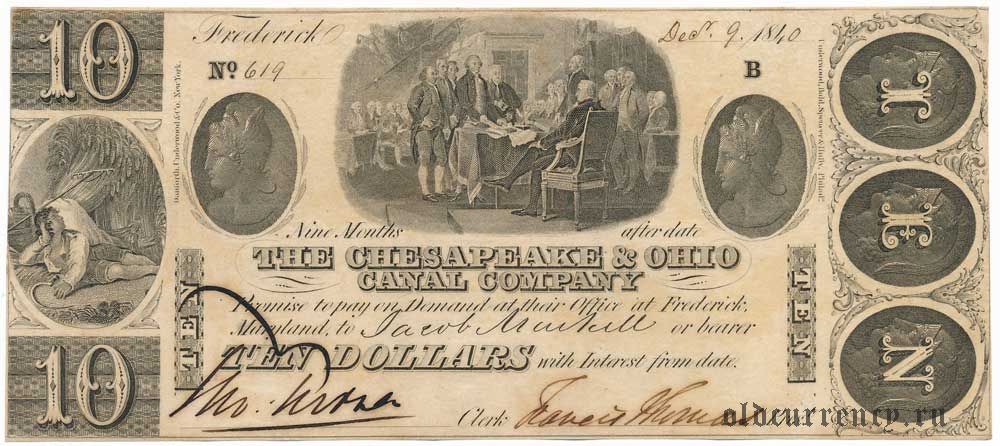 10
Frederick Dec.r 9. 1840
No 619 B
Danforth, Underwood & Co. New York.
Underwood, Bald, Spencer & Hufty, Philada.
Nine Months after date
THE CHESAPEAKE & OHIO
CANAL COMPANY
Promise to pay on Demand at their Office at Frederick,
Maryland, to Jacob or bearer
TEN DOLLARS with Interest from date.
Clerk Francis Thomas
TEN
TEN
10
T
E
N
oldcurrency.ru